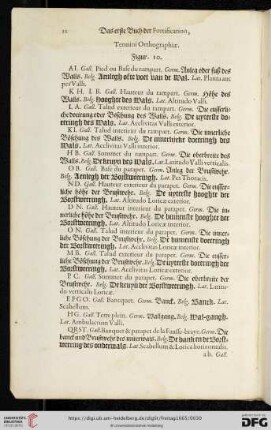 32 Das erste Buch der Fortification,
Termini Orthographiæ.
Figur. 10.
A I. Gall. Pied ou Base du rampart. Germ. Anleg oder fuß des
Walls. Belg. Aenlegh oft voet van de Wal. Lat. Planta aut
per Valli.
K H. I B. Gall. Hauteur du rampart. Germ. Höhe des
Walls. Belg. hooghte des Wals. Lat. Altitudo Valli.
I. A. Gall. Talud exterieur du rampart. Germ. Die eusserli-
che doeirung oder Böschung des Walls. Belg. De uyterste do-
eeringh des Wals. Lat. Acclivitas Valli exterior.
K I. Gall. Talud interieur du rampart. Germ. Die innerliche
Böschung des Walls. Belg. De binnenste doeeringh des
Wals. Lat. Acclivitas Valli interior.
H B. Gall. Sommet du rampart. Germ. Die oberbreite des
Walls. Belg. De kruyn des Wals. Lat. Latitudo Valli verticalis.
O B. Gall. Base du parapet. Germ. Anleg der Brustwehr.
Belg. Aenlegh der Borstweeringh. Lat. Pes Thoracis.
N D. Gall. Hauteur exterieur du parapet. Germ. Die eusser-
liche höhe der Brustwehr. Belg. De uyterste hooghte der
Borstweeringh. Lat. Altitudo Loricæ exterior.
D N. Gall. Hauteur interieur du parapet. Germ. Die in-
nerliche höhe der Brustwehr. Belg. De binnenste hooghte der
Borstweeringh. Lat. Altitudo Loricæ interior.
O N. Gall. Talud interieur du parapet. Germ. Die inner-
liche Böschung der Brustwehr. Belg. De binnenste doeeringh
der Borstweeringh. Lat. Acclivitas Loricæ interior.
M B. Gall. Talud exterieur du parapet. Germ. Die eusser-
liche Böschung der Brustwehr. Belg. De uyterste doeeringh der
Borstweeringh. Lat. Acclivitas Loricæ exterior.
P C. Gall. Sommet du parapet. Germ. Die oberbreite der
Brustwehr. Belg. De kruyn der Borstweeringh. Lat. Latitu-
do verticalis Loricæ.
E F G O. Gall. Banquet. Germ. Banck. Belg. Banck. Lat.
Scabellum.
H G. Gall. Terre plein. Germ. Wallgang. Belg. Wal-gangh.
Lat. Ambulacrum Valli.
Q R S T. Gall. Banquet & parapet de la fausse braye. Germ. Die
banck und Brustwehr des unterwals. Belg. De banck en de Borst-
weering des onderwals. Lat. Scabellum & Lorica
a b. Gall.
UNIVERSITÄTS-BIBLIOTHEK HEIDELBERG
DFG